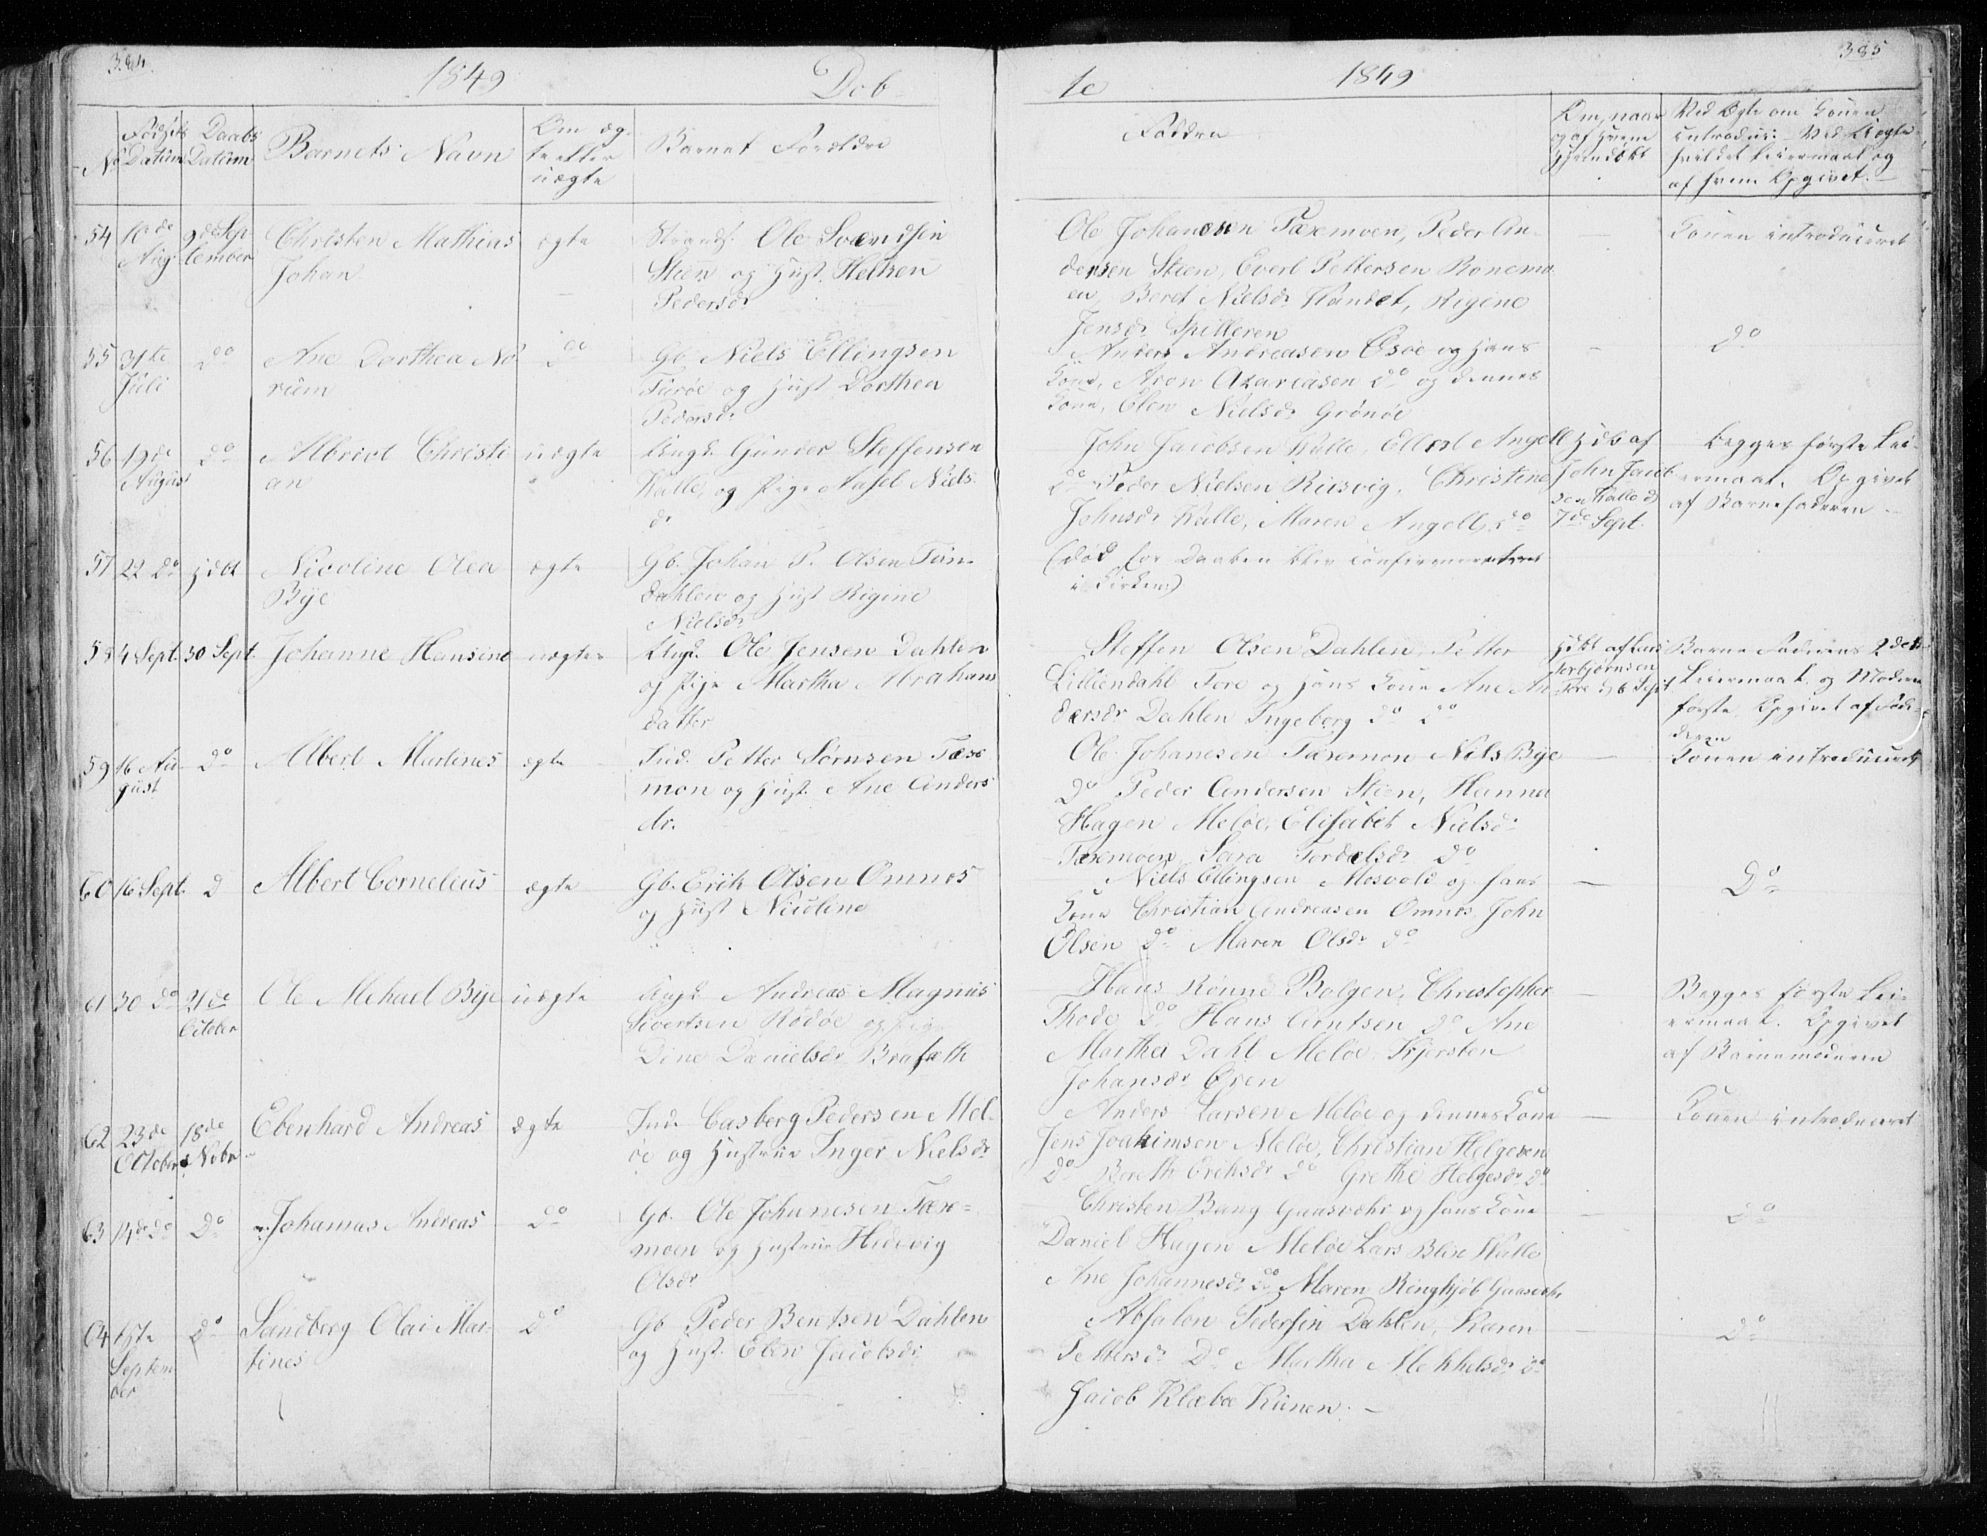 384. 1849 Døb
te 1849 385
No
Fødsels Datum
Daabs Datum
Barnets Navn
Om ægte eller uægte
Barnets Forældre
Faddre
Om, naar og af hvem hjemdøbt
Ved Ægte om Konen introdus: Ved Uægte hvilket Leiermaal og af hvem Opgivet.
54 10de Aug 9de September
Christen Mathias
Johan
ægte
Ole Svendsen
Steen og Hust.
Pedersdr
Ole Johannesen Færemoen, Peder An-
dersen Steen, Evert Pettersen Rønemo-
en, Beret Nielsdr Vandet, Rigine
Jensdr Spilleren
—
Konen introduceret
55 31te Juli do
Ane Dorthea No
rum
do
Gb. Niels Ellingsen
Turøe og Hust Dorthea
Pedersdr
Anders Andreasen Esøe og Hans
Kone, Aron Azariasen do og dennes
Kone, Elen Nielsdr Grønøe
—
do
56 19de August do
Albrict Christi
an
uægte
Ungk. Gunder Steffensen
Halle, og Pige Aasel Niels
dr
John Jacobsen Halle, Ellert Angell
do Peder Nielsen Risvig, Christine
Johnsdr Halle, Maren Angell do
Hjdb af
John Jacob
sen Halle d
7de Sept.
Begges første Lei-
ermaal. Opgivet
af Barnefaderen
57 22 do Hjdbt
Nicoline Olea
Bye
ægte
Gb. Johan P. Olsen Tøn-
dahlen og Hust Rigine
Nielsdr
(død før Daaben blev confirmeret
i Kirken)
58 4 Sept. 30 Sept.
Johanne Hansine
uægte
Ungk. Ole Jensen Dahlen
og Pige Martha Abrahams
datter
Steffen Olsen Dahlen, Petter
Lilliendahl Fore og Hans Kone Ane An
dersdr Dahlen Ingeborg do do
Hjdbt af Lars
Torbjørnsen
Fore d 6 Sept
Barne Faderens 2det
Leiermaal og Moderens
første Opgivet af Fade-
deren
59 16 August do
Albert Martines
ægte
Ind. Petter Sørnsen Fære
mon og Hust. Ane Anders
dr.
Ole Johanesen Færemon Nels Bye
do Peder Andersen Steen, Hanna
Hagen Meløe, Elisabet Nielsdr
Færemoen, Sara Tordalsdr do
—
Konen introduceret
60 16 Sept. d
Albert Cornelius
ægte
Gb. Erik Olsen Omnes
og Hust Nicoline
Niels Ellingsen Mosvold og hans
Kone Christian Andreasen Omnes, John
Olsen do Maren Olsdr do
—
Do
61 30 do 21de October
Ole Mekael Bye
uægte
Ungk. Andreas Magnus
Sivertsen Rødøe og Pige
Dine Danielsdr Brasæth
Hans Rønne Bolgen, Christopher
Thode do Hans Arntsen do Ane
Martha Dahl Meløe, Kjersten
Johansdr Øren
—
Begges første Lei-
ermaal. Opgivet
af Barnemoderen
62 23de October 18de Nobr
Ebenhard Andreas
ægte
Ind. Casberg Pedersen Mel-
øe og Hustrue Inger Nielsdr
Anders Larsen Meløe og dennes Kone
Jens Joakimsen Meløe, Christian Helgesen
do Bereth Eriksdr do Grethe Helgesdr do
—
Konen introduceret
63 14de do Do
Johannas Andreas
do
Gb. Ole Johanesen Fære-
moen og Hustrue Hedevig
Olsdr
Christen Bang Gaasvær og hans Kone
Daniel Hagen Meløe Lars Blix Halle
Ane Johannesdr do Maren Ringkjøb Gaasvær
—
do
64 1ste September Do
Sandberg Olai Mar-
tines
do
Gb. Peder Bentsen Dahlen
og Hust. Elen Jacobsdr
Absalon Pedersen Dahlen, Karen
Pettersdr Do Martha Mekkelsdr do
Jacob Klæboe Kunen. —
—
Do